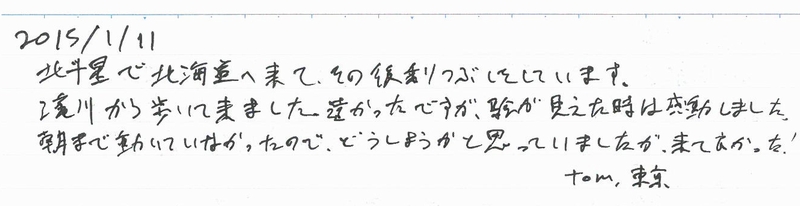 2015/1/11
北斗星で北海道へ来て、その後乗りつぶしをしています。
滝川から歩いて来ました。遠かったですが、駅が見えた時は感動しました。
朝まで動いていなかったので、どうしようかと思っていましたが、来てよかった!
tom, 東京